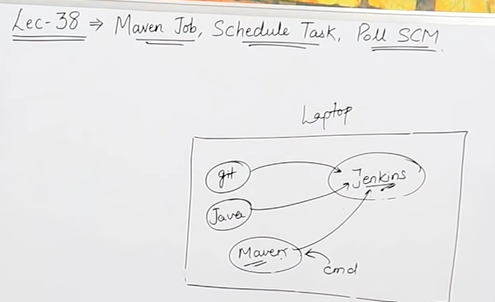 Lec-38 ⇒ Maven Job, Schedule Task, Poll SCM
Laptop
git
Jenkins
Java
Maven
cmd